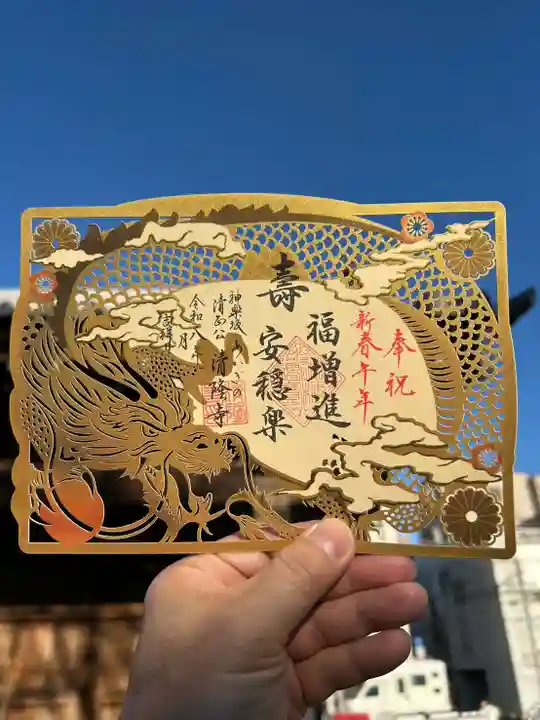 奉祝
新春午年
福増進
壽 安穏樂
神樂坂
清正公 清隆寺
令和八